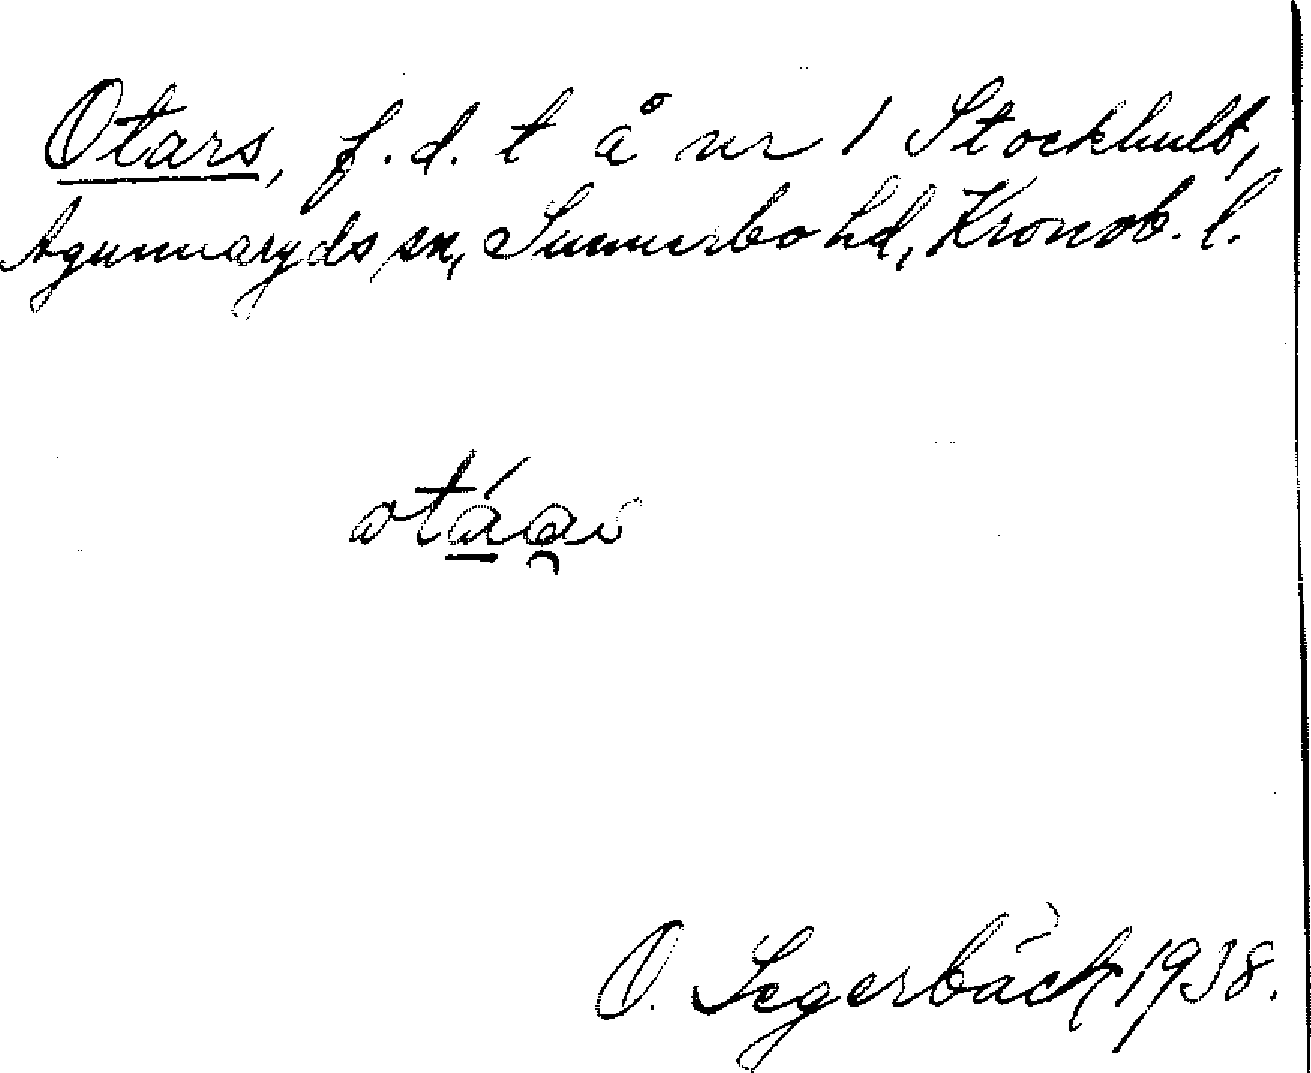 Otars, f.d. t å nr 1 Stockhult,
Agunnaryds sn, Sunnerbo hd, Kronob. l.
O. Segerbäck 1938.